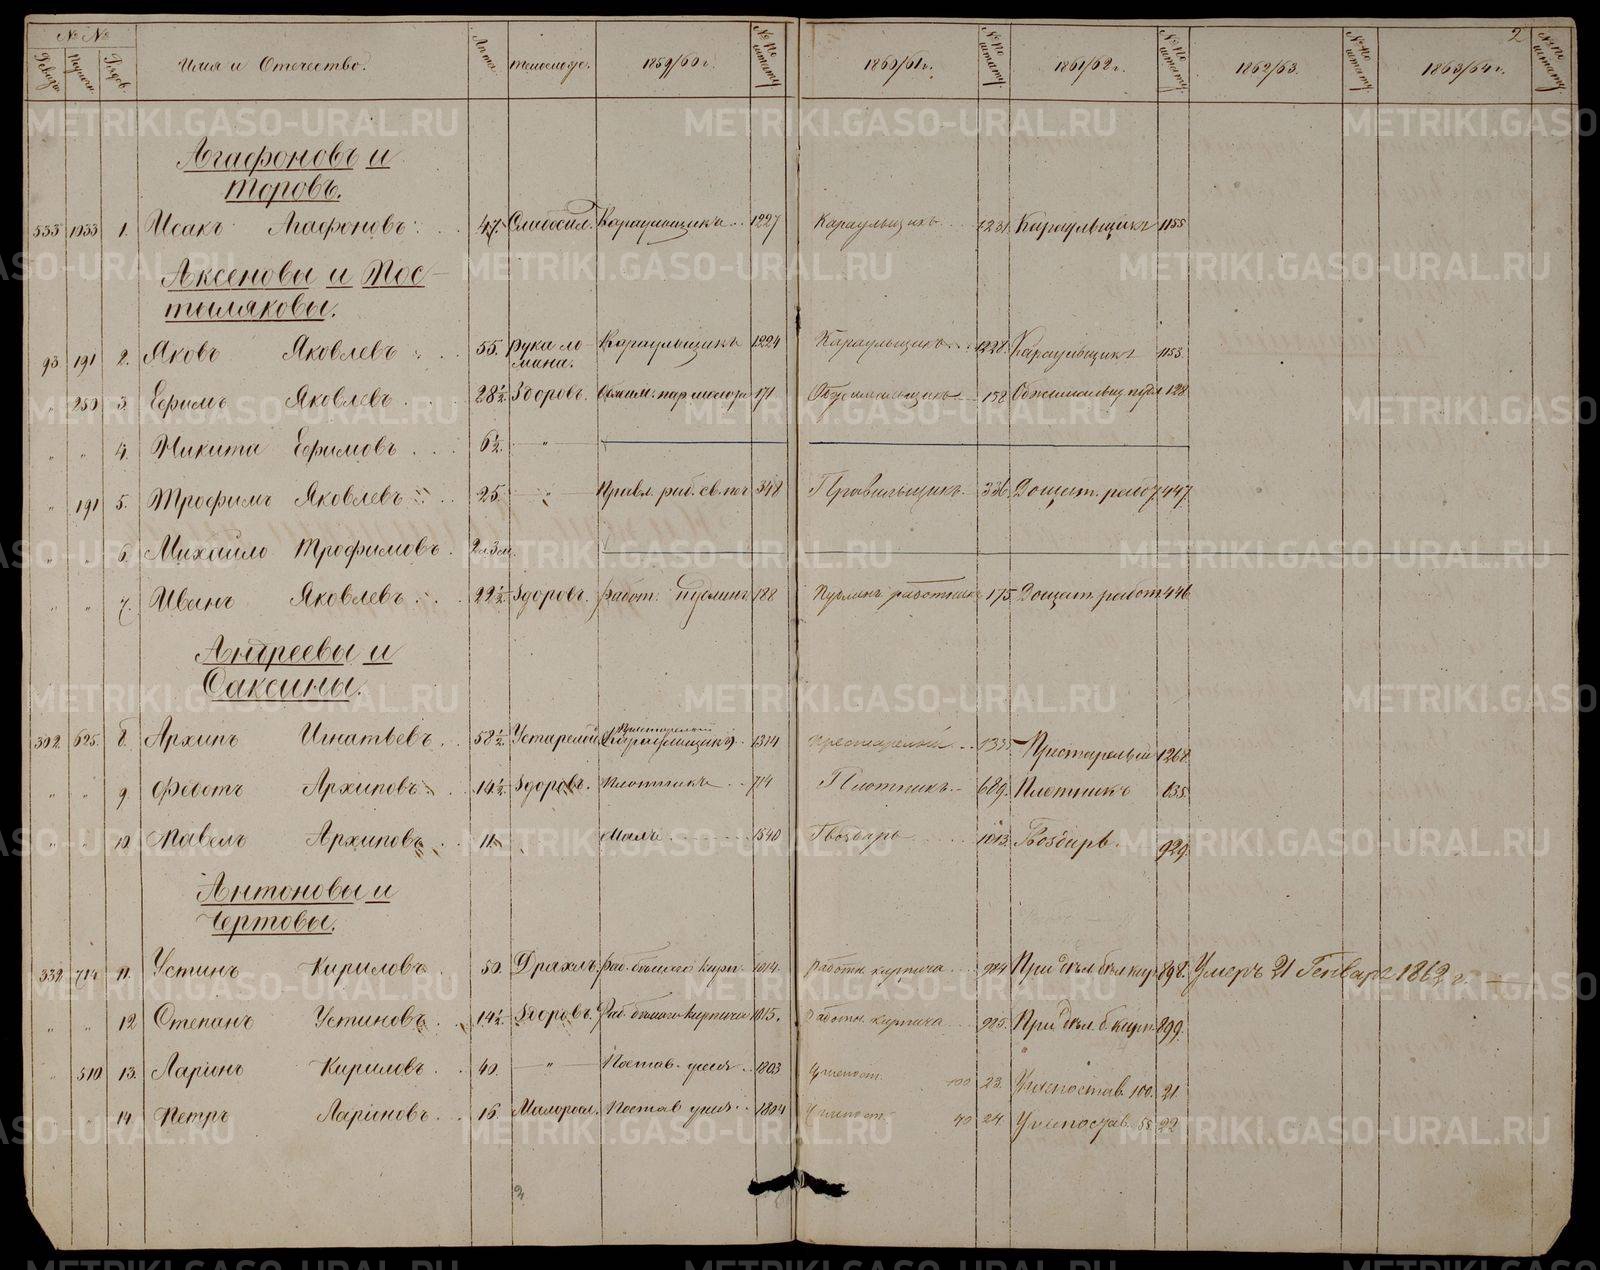 № № Имя и Отчество. Лѣта. Телослож. 1859/60 г. №№ по штату 1860/61 г. №№ по штату. 1861/62 г. №№ по штату. 1862/63. №№ по штату. 1863/64 г. 2 №№ по штату.
Агафоновъ и
Торовъ.
533 1933 1. Исакъ Агафоновъ 47. Слабосил. Караульщикъ 1227 Караульщикъ 1231. Караульщикъ 1155
Аксеновы и Пос-
тыляковы.
93 191 2. Яковъ Яковлевъ 55. рука ло
мана. Караульщикъ 1224 Караульщикъ 1228. Караульщикъ 1153.
" 250 3. Ефимъ Яковлевъ 28½ Здоровъ. 171 158 128
" " 4. Никита Ефимовъ 6½. "
" 191 5. Трофимъ Яковлевъ 25. " Правл. раб. св. печ 348 Правильщикъ 336. Дощат. работ 447.
" " 6. Михайло Трофимовъ 2л.3м.
" " 7. Иванъ Яковлевъ 22½ Здоровъ. Работ. пудлинг 188 Пудлинг. работникъ 175. Дощат. работ 446
Андреевы и
Саксины.
392. 625. 8. Архипъ Игнатьевъ. 58½ Устарелой Престарелый Караульщикъ 1314 престарелый Престарелый 1268.
" " 9. Федотъ Архиповъ 14½ Здоровъ. Плотникъ 714 Плотникъ 689. Плотникъ 635.
" " 10 Павелъ Архиповъ 11. Малъ 1540 Гвоздарь 1013. Гвоздарь. 929.
Антоновы и
Чертовы.
332. 714 11. Устинъ Кириловъ 50. Дряхлъ. Раб. бѣлаго кирп. 1014. Работн. кирпича 984 При дѣл. бѣл. кир. 898. Умеръ 21 Генваря 1862 г.
" " 12 Степанъ Устиновъ. 14½ Здоровъ. Раб. бѣлаго кирпича 1015. Работн. кирпича 985. При дѣл. б. кирп. 899.
" 510 13. Ларіонъ Кириловъ 40. " Постав. угля 1803 Углепост. 100 23. Углепостав. 100. 21
" 14. Петръ Ларіоновъ. 16. Малоросл. Постав угля 1804 Углепост. 40 24 Углепостав. 55. 22